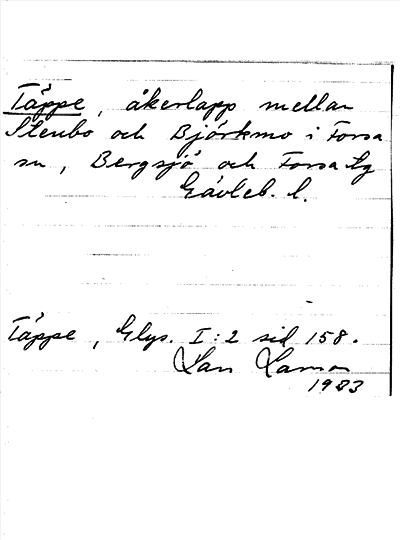 Täppe, åkerlapp mellan
Stenbo och Björkmo i Forsa
sn, Bergsjö och Forsa tg
Gävleb. l.
Täppe, Glys. I:2 sid 158.
Lars Larsson
1983